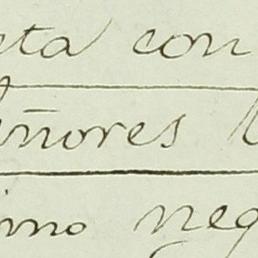 eta con
eñores
imo neg